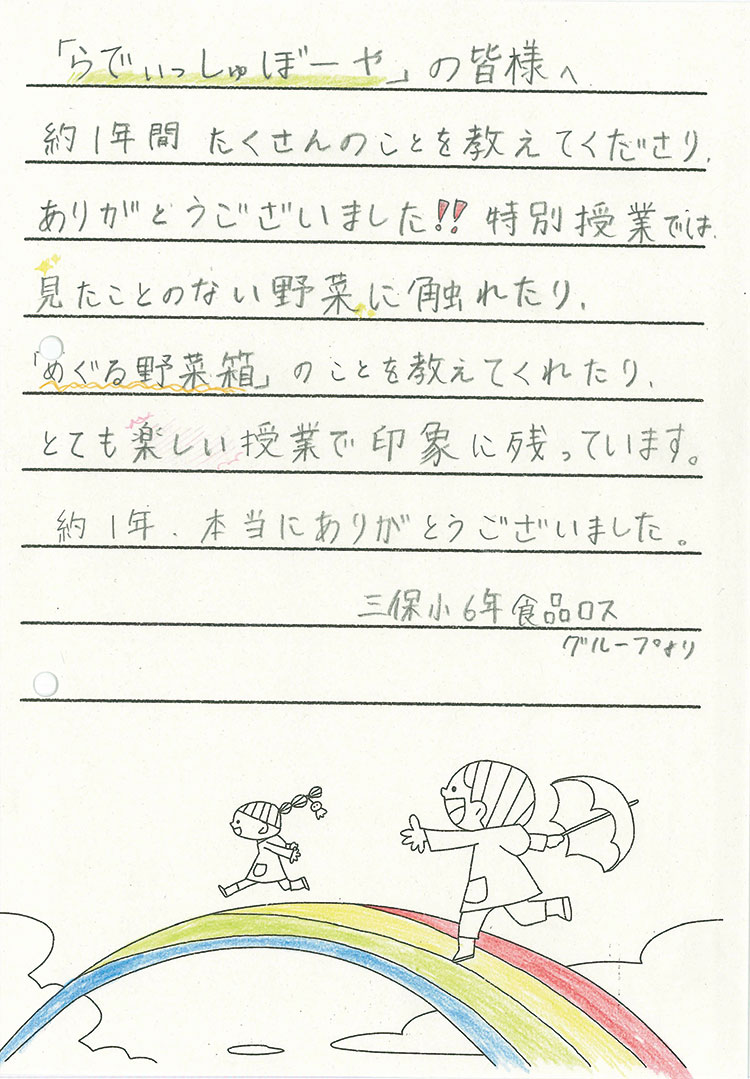 「らでぃっしゅぼーや」の皆様へ
約1年間 たくさんのことを教えてくださり、
ありがとうございました!! 特別授業では、
見たことのない野菜に触れたり、
「めぐる野菜箱」のことを教えてくれたり、
とても楽しい授業で印象に残っています。
約1年、本当にありがとうございました。
三保小6年食品ロス
グループより